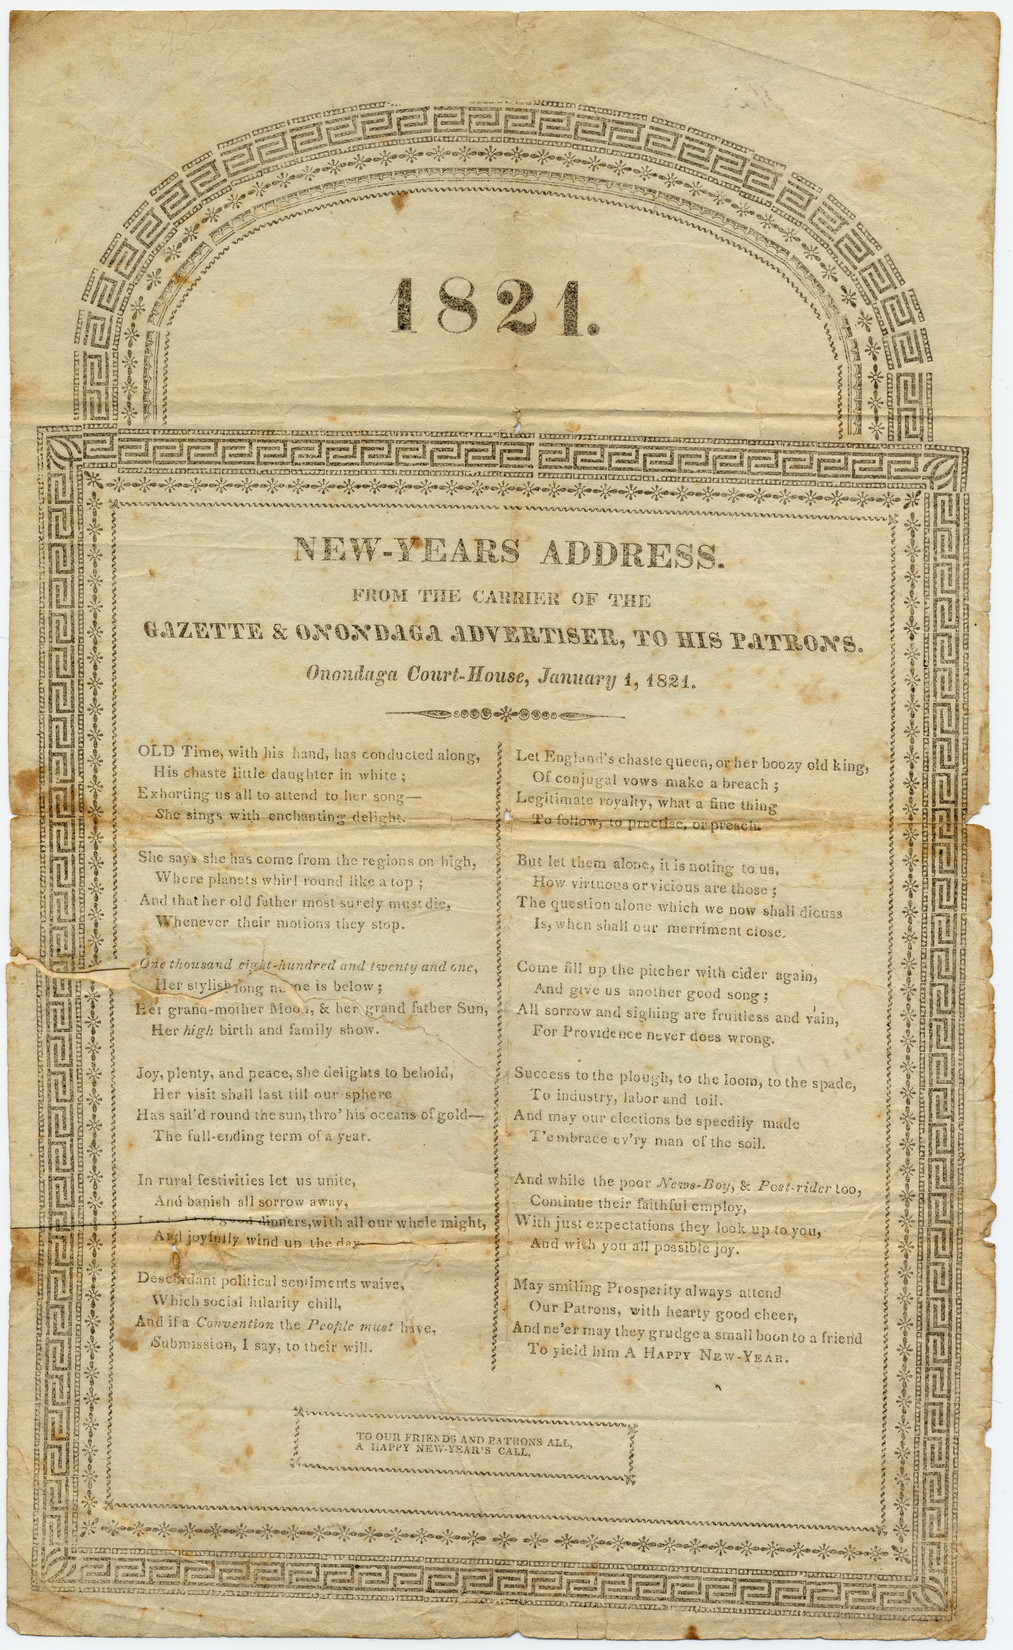 1821.
NEW-YEARS ADDRESS.
FROM THE CARRIER OF THE
GAZETTE & ONONDAGA ADVERTISER, TO HIS PATRONS.
Onondaga Court-House, January 1, 1821.
OLD Time, with his hand, has conducted along,
His chaste little daughter in white;
Exhorting us all to attend to her song—
She sings with enchanting delight.
She says she has come from the regions on high,
Where planets whirl round like a top;
And that her old father most surely must die,
Whenever their motions they stop.
One thousand eight-hundred and twenty and one,
Her stylish long is below;
Her grand-mother Moon, & her grand father Sun,
Her high birth and family show.
Joy, plenty, and peace, she delights to behold,
Her visit shall last till our sphere
Has sail'd round the sun, thro' his oceans of gold—
The full-ending term of a year.
In rural festivities let us unite,
And banish all sorrow away,
good dinners, with all our whole might,
And joyfully wind up the day
Descordant political sentiments waive,
Which social hilarity chill,
And if a Convention the People must have,
Submission, I say, to their will.
Let England's chaste queen, or her boozy old king,
Of conjugal vows make a breach;
Legitimate royalty, what a fine thing
To follow, to practise, or preach.
But let them alone, it is noting to us,
How virtuous or vicious are those;
The question alone which we now shall dicuss
Is, when shall our merriment close.
Come fill up the pitcher with cider again,
And give us another good song;
All sorrow and sighing are fruitless and vain,
For Providence never does wrong.
Success to the plough, to the loom, to the spade,
To industry, labor and toil.
And may our elections be speedily made
T'embrace ev'ry man of the soil.
And while the poor News-Boy, & Post-rider too,
Continue their faithful employ,
With just expectations they look up to you,
And wish you all possible joy.
May smiling Prosperity always attend
Our Patrons, with hearty good cheer,
And ne'er may they grudge a small boon to a friend
To yield him A HAPPY NEW-YEAR.
TO OUR FRIENDS AND PATRONS ALL,
A HAPPY NEW-YEAR'S CALL,